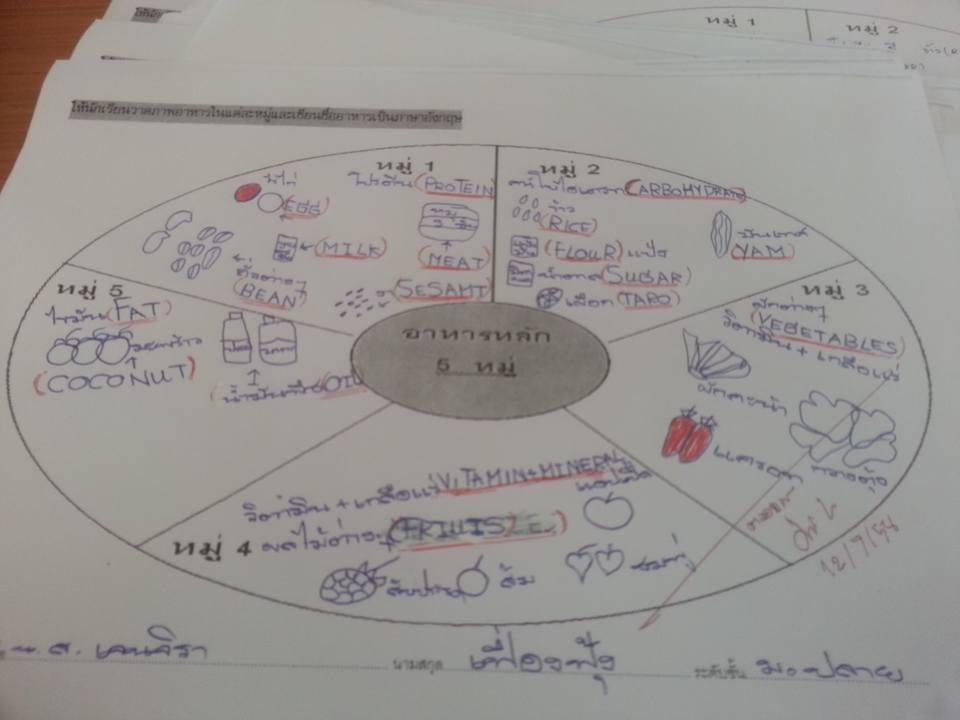 ให้นักเรียนวาดภาพอาหารในแต่ละหมู่และเขียนชื่ออาหารเป็นภาษาอังกฤษ
หมู่ 1
หมู่ 2
หมู่ 1
โปรตีน (PROTEIN)
ไข่ไก่
EGG
(MILK)
(MEAT)
ถั่วต่างๆ
(BEAN)
งา (SESAMI)
หมู่ 2
คาร์โบไฮเดรต (CARBOHYDRATE)
ข้าว
(RICE)
(FLOUR) แป้ง
น้ำตาล (SUGAR)
เผือก (TARO)
มันเทศ
(YAM)
หมู่ 3
ผักต่างๆ
(VEGETABLES)
วิตามิน + เกลือแร่
ผักคะน้า
แครอท
กวางตุ้ง
12/7/54
หมู่ 5
ไขมัน (FAT)
มะพร้าว
(COCONUT)
(น้ำมันพืช OIL
อาหารหลัก
5 หมู่
วิตามิน + เกลือแร่ (VITAMIN+MINERAL
หมู่ 4 ผลไม้ต่างๆ
แอปเปิ้ล
สับปะรด
ส้ม
ชมพู่
น.ส. เจนจิรา นามสกุล เฟื่องฟุ้ง ระดับชั้น ม.ปลาย